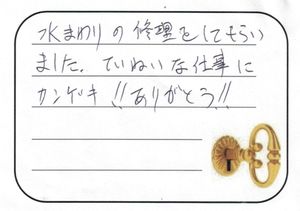 水まわりの修理をしてもらい
ました。ていねいな仕事に
カンゲキ!!ありがとう!!